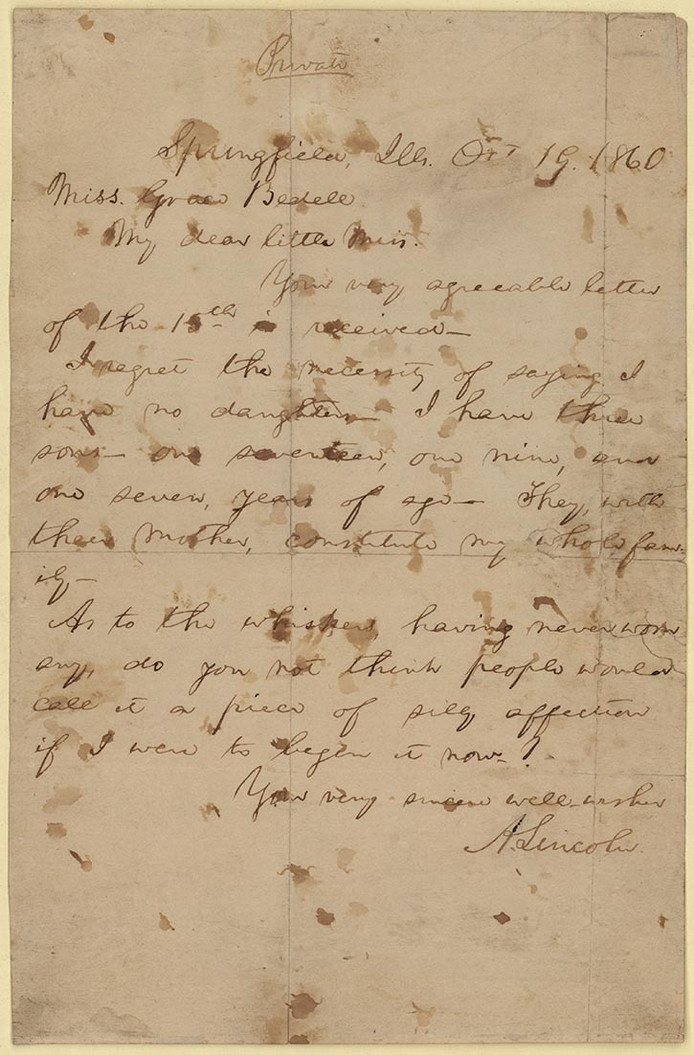 Private
Springfield, Ills. Oct 19. 1860
Miss. Grace Bedell
My dear little Miss.
Your very agreeable letter
of the 15th is received—
I regret the necessity of saying I
have no daughters— I have three
sons— one seventeen, one nine, and
one seven, years of age— They, with
their mother, constitute my whole fam-
ily—
As to the whiskers, having never worn
any, do you not think people would
call it a piece of silly affection
if I were to begin it now?
Your very sincere well-wisher
A. Lincoln.